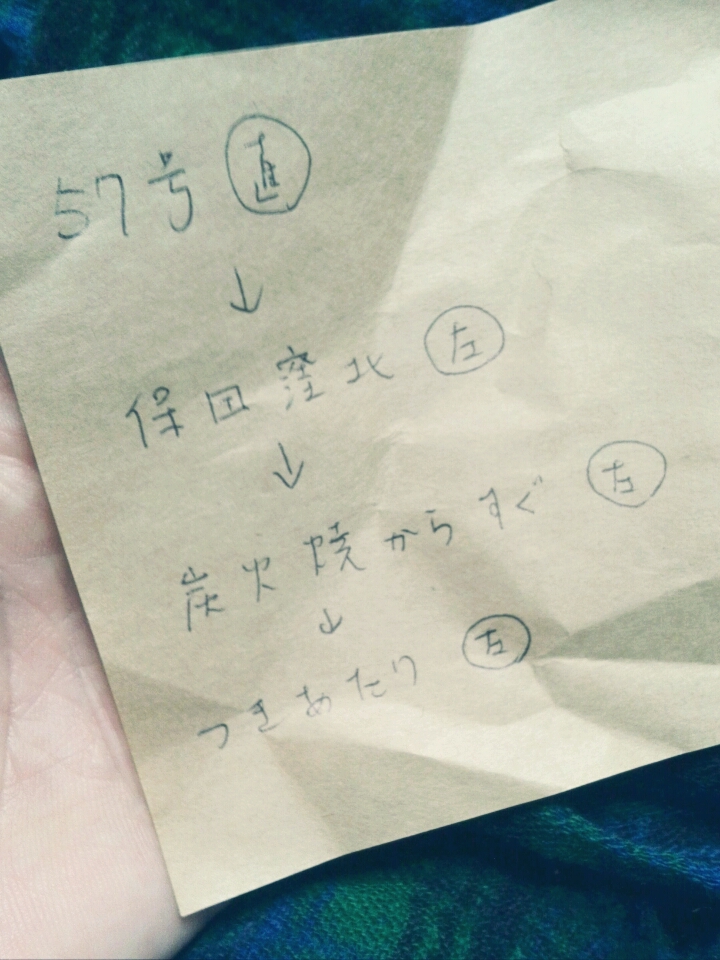 57号 直
↓
保田窪北 左
↓
炭火焼からすぐ 左
↓
つきあたり 左